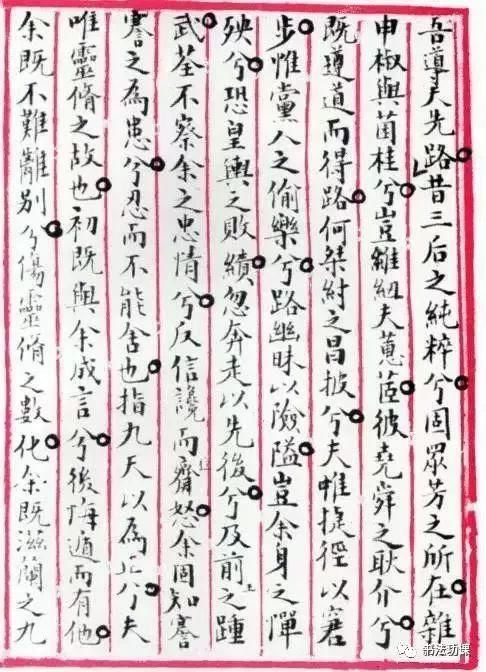 吾導夫先路昔三后之純粹兮固眾芳之所在雜
申椒與菌桂兮豈維紉夫蕙茝彼堯舜之耿介兮
既遵道而得路何桀紂之昌披兮夫惟捷徑以窘
步惟黨人之偷樂兮路幽昧以險隘豈余身之憚
殃兮恐皇輿之敗績忽奔走以先後兮及前王之踵
武荃不察余之忠情兮反信讒而齌怒余固知謇
謇之為患兮忍而不能舍也指九天以為正兮夫
唯靈脩之故也初既與余成言兮後悔遁而有他
余既不難離別兮傷靈脩之數化余既滋蘭之九
书法功课